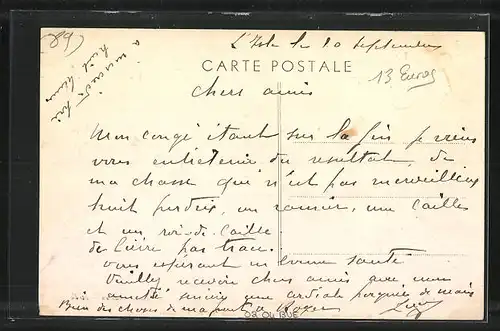 (89)
L'Isle le 10 septembre
CARTE POSTALE
13 Euros
à minuit
huit heures
chers amis
Mon congé étant sur la fin je viens
vous entretenir du resultat de
ma chasse qui n'est pas merveilleux
huit perdrix, un ramier, une caille
et un roi-de-caille
de lièvre pas trace.
vous espérant en bonne santé
Veuillez recevoir chers amis avec mon
amitié une cordiale poignée de mains
Bien des choses de ma part